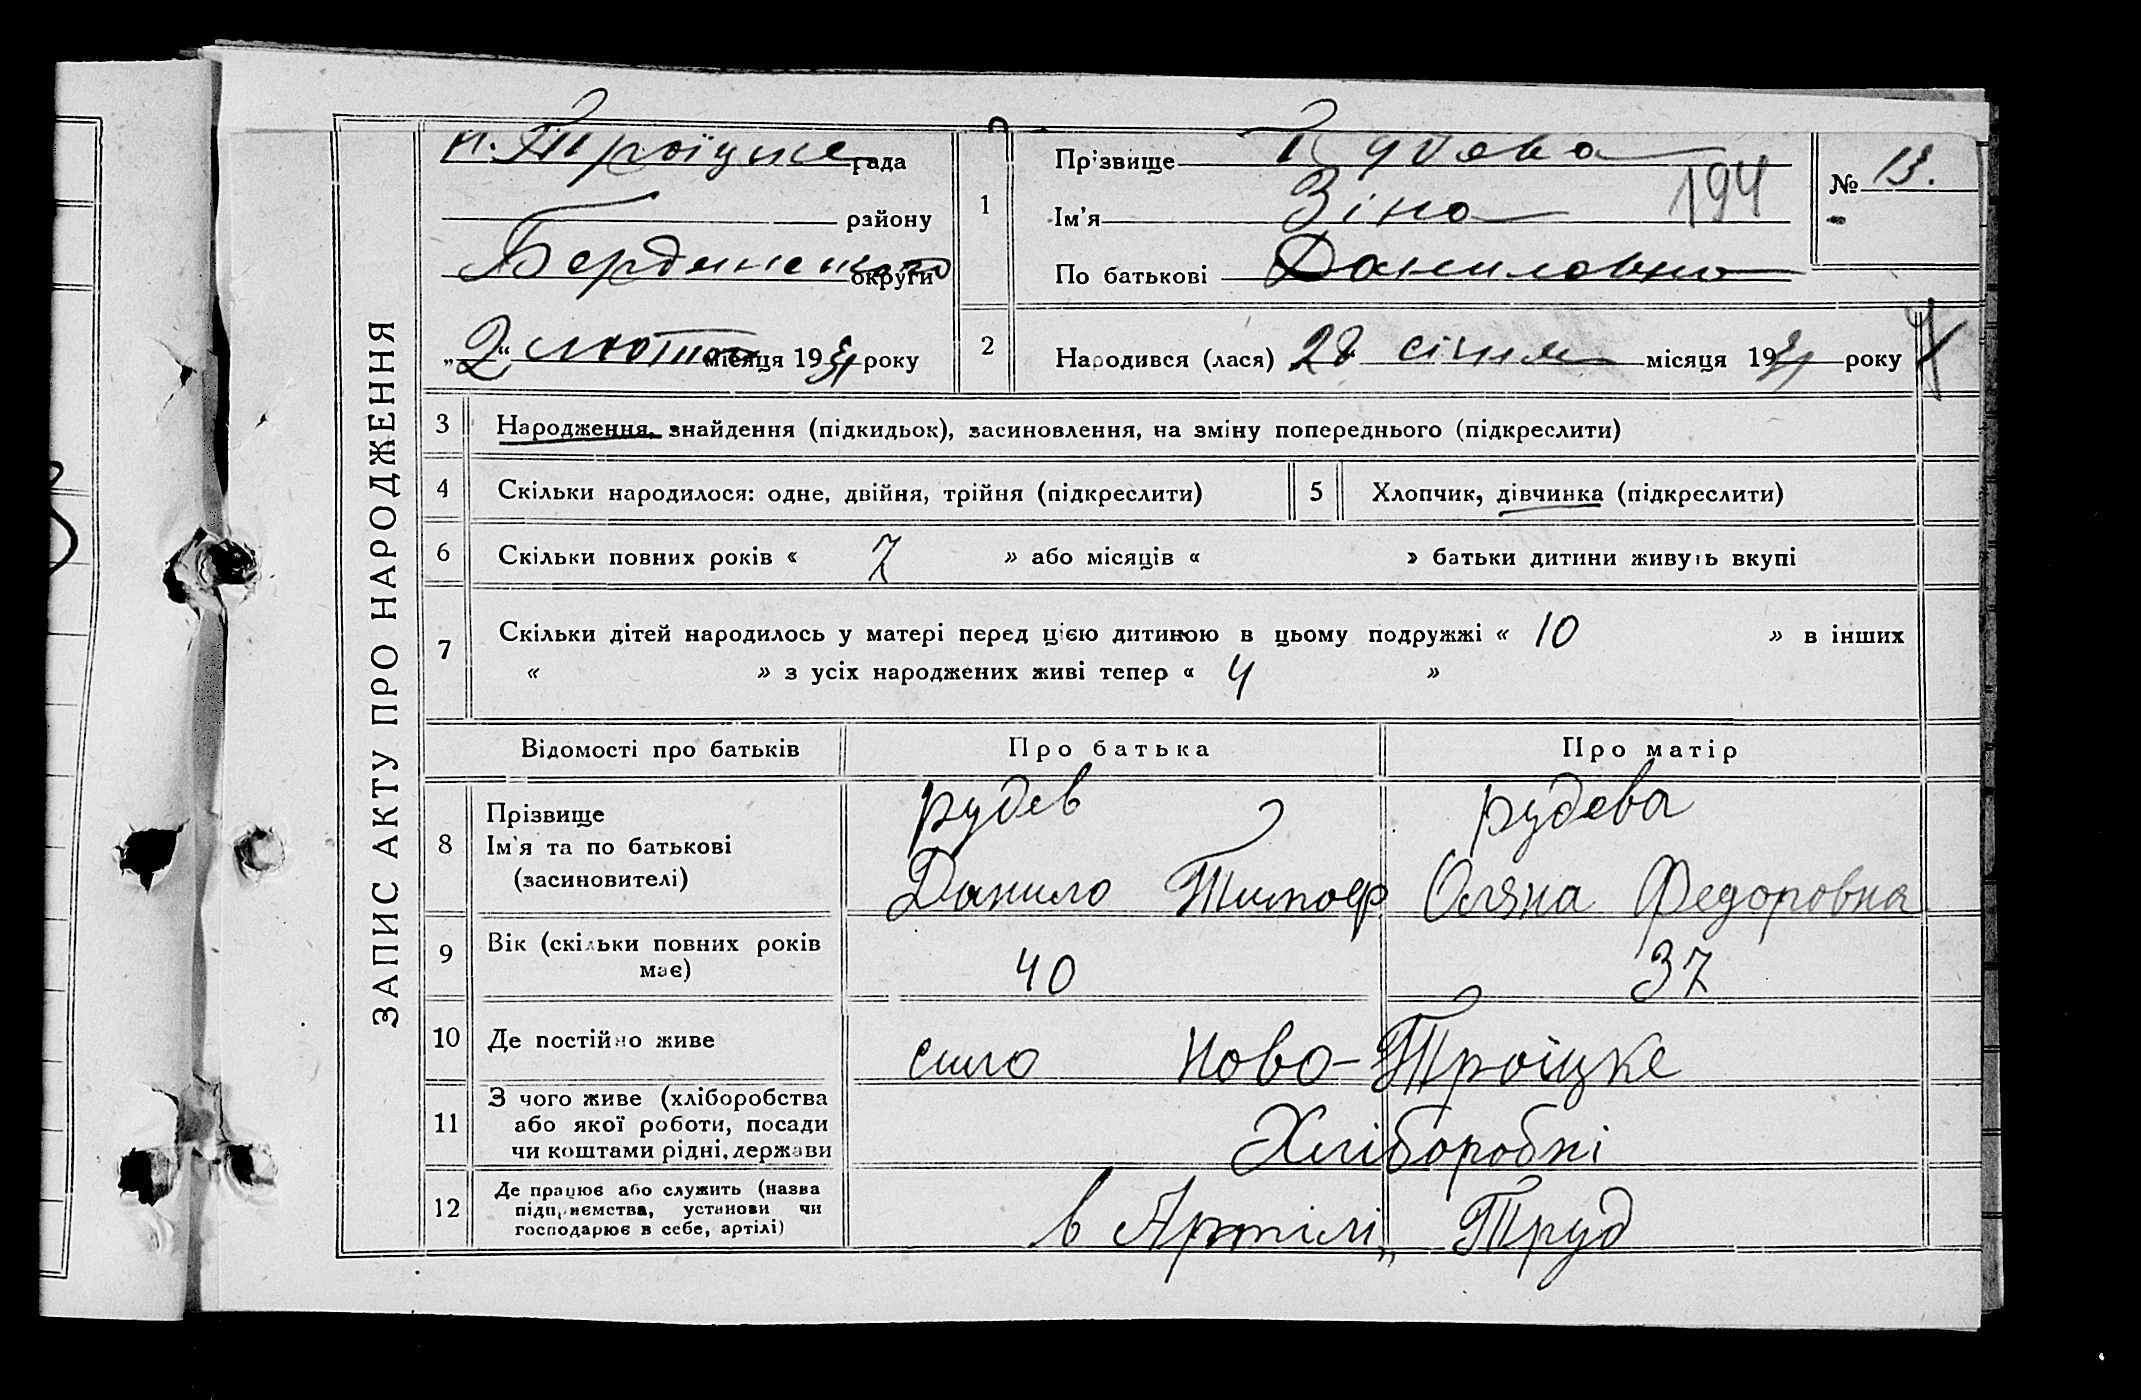 ЗАПИС АКТУ ПРО НАРОДЖЕННЯ
н. Троїцке рада
району
Бердянського округи
„2“ лютого місяця 1931 року
1
Прізвище Рудева
Ім’я Зіна 194
По батькові Даниловна
№ 13.
2
Народився (лася) 28 січня місяця 1931 року
3 Народження, знайдення (підкидьок), засиновлення, на зміну попереднього (підкреслити)
4 Скільки народилося: одне, двійня, трійня (підкреслити)
5 Хлопчик, дівчинка (підкреслити)
6 Скільки повних років « » або місяців « » батьки дитини живуть вкупі
7 Скільки дітей народилось у матері перед цією дитиною в цьому подружжі « 10 » в інших
« » з усіх народжених живі тепер « 4 »
Відомості про батьків Про батька Про матір
8 Прізвище
Ім’я та по батькові
(засиновителі)
рудев рудева
Данило Тимоф Оляна Федоровна
9 Вік (скільки повних років
має)
40 37
10 Де постійно живе село Ново-Троїцке
11 З чого живе (хліборобства
або якої роботи, посади
чи коштами рідні, держави
Хліборобні
12 Де працює або служить (назва
підприємства, установи чи
господарює в себе, артілі)
в Артілі „ Труд